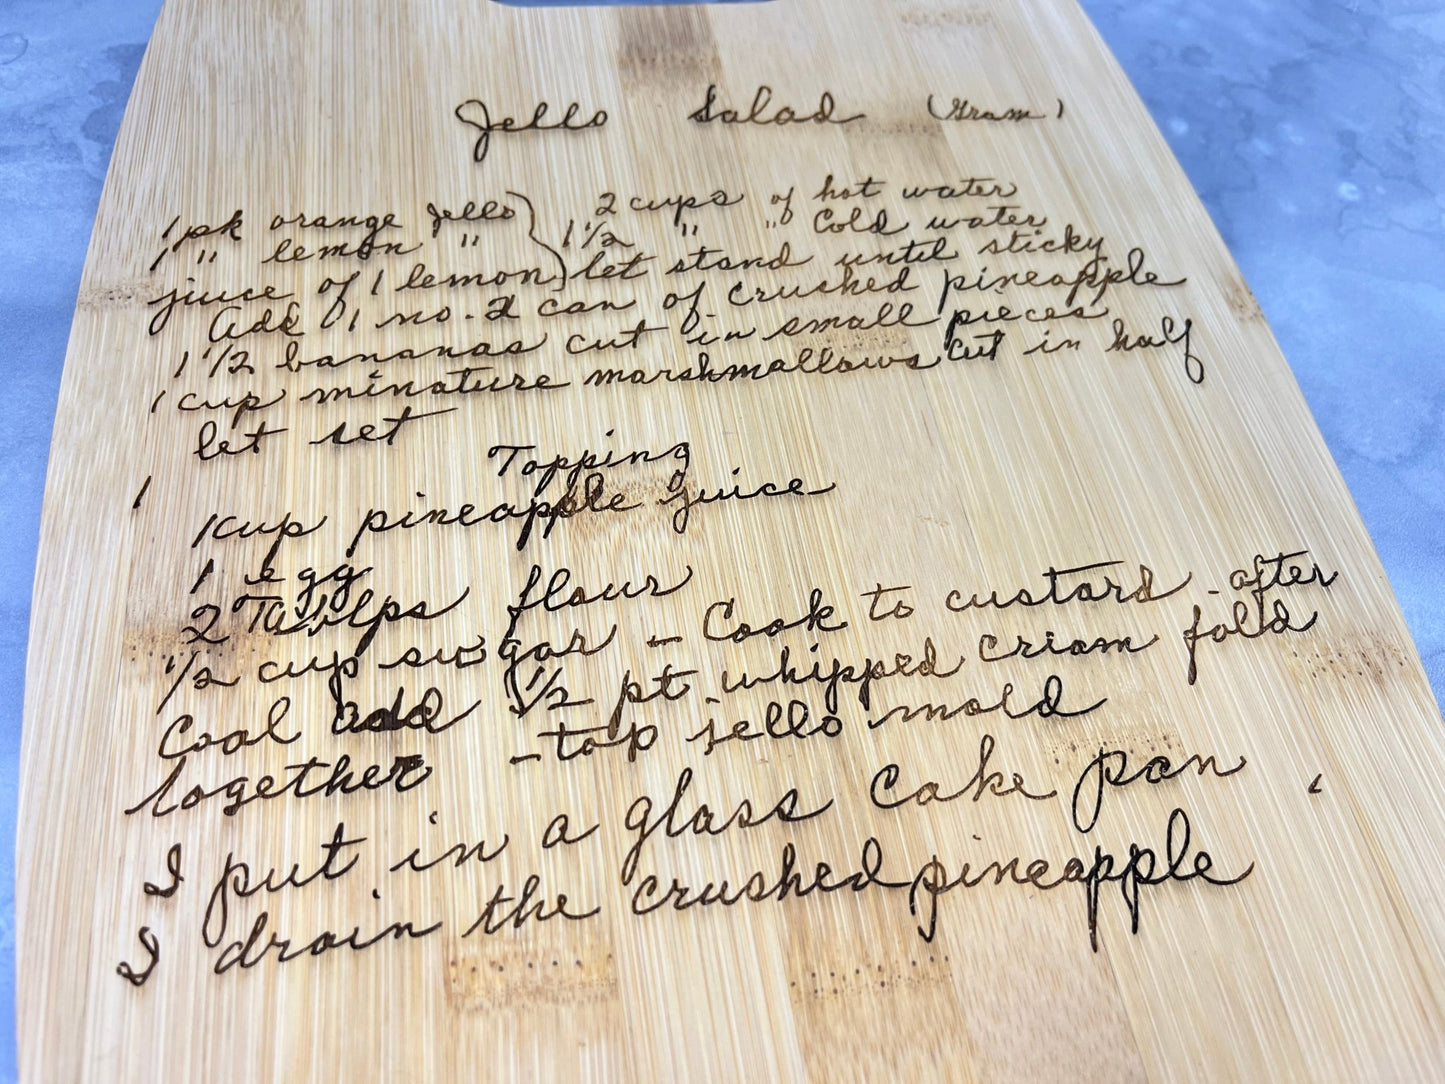 Jello Salad (Gram)
1 pk orange Jello } 2 cups of hot water
1 " lemon " 1 1/2 " " Cold water
juice of 1 lemon } let stand until sticky
add 1 no. 2 can of crushed pineapple
1 1/2 bananas cut in small pieces
1 cup minature marshmallows cut in half
let set
Topping
1 cup pineapple juice
1 egg
2 flour
1/2 cup sugar - Cook to custard - after
Cool add 1/2 pt whipped cream fold
together - top jello mold
I put in a glass cake pan
I drain the crushed pineapple